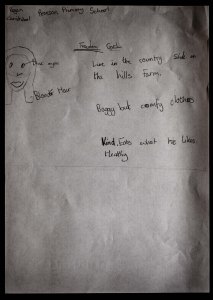 Pearson Primary School
Blue eyes
Live in the country side on
the hills Farm.
Blonde Hair
Baggy but comfy clothes
Kind. Eats what he likes
Healthy